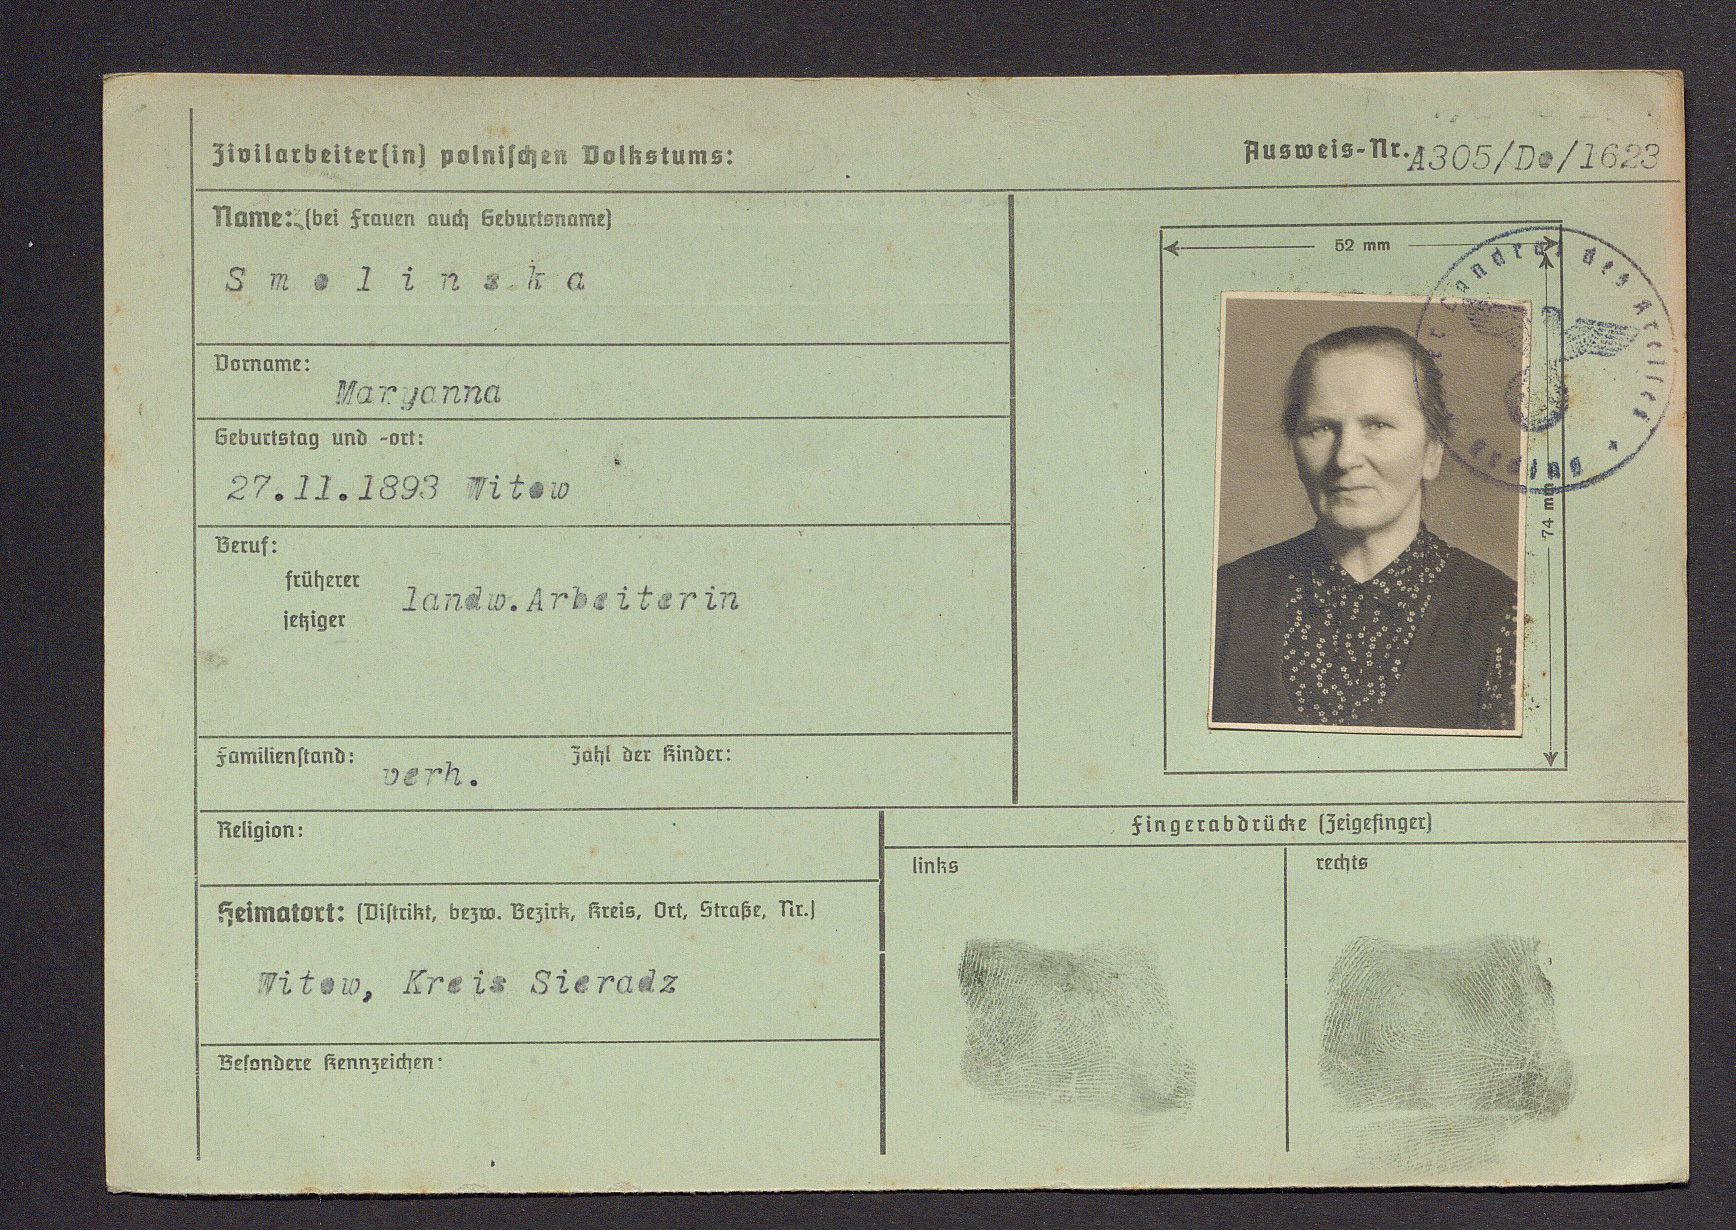 Zivilarbeiter(in) polnischen Volkstums:
Ausweis-Nr. A305/Do/1623
Name: (bei Frauen auch Geburtsname)
Smolinska
Vorname:
Maryanna
Geburtstag und -ort:
27.11.1893 Witow
Beruf:
früherer
jetziger
landw.Arbeiterin
Familienstand: verh.
Zahl der Kinder:
Religion:
Heimatort: (Distrikt, bezw. Bezirk, Kreis, Ort, Straße, Nr.)
Witow, Kreis Sieradz
Besondere Kennzeichen:
52 mm
74 mm
Landrat des Kreises
Erding
Fingerabdrücke (Zeigefinger)
links
rechts